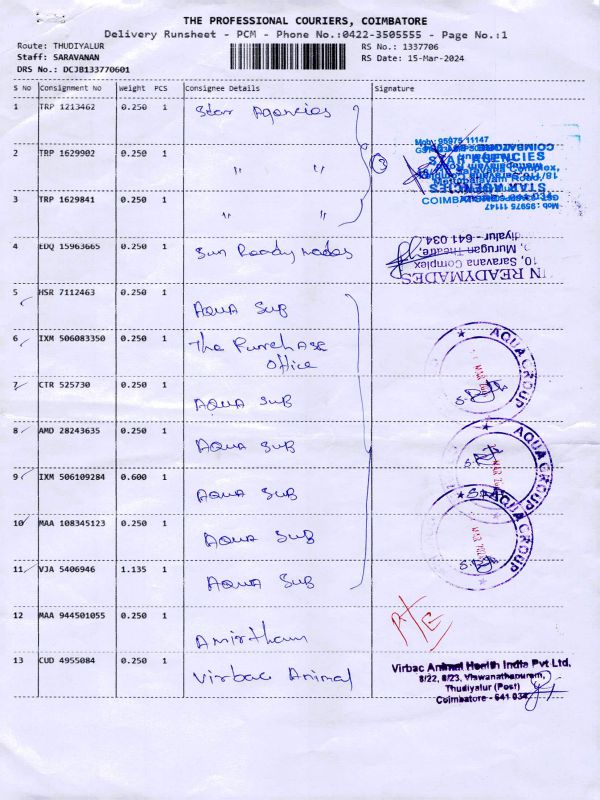 THE PROFESSIONAL COURIERS, COIMBATORE
Delivery Runsheet - PCM - Phone No.:0422-3505555 - Page No.:1
Route: THUDIYALUR RS No.: 1337706
Staff: SARAVANAN RS Date: 15-Mar-2024
DRS No.: DCJB133770601
S No Consignment No Weight PCS Consignee Details Signature
1 TRP 1213462 0.250 1 Star Agencies
2 TRP 1629902 0.250 1 " "
3
3 TRP 1629841 0.250 1 " "
Mob: 95975 11147
STAR AGENCIES
Saravana Complex,
STAR AGENCIES
COIMBATORE
Mob : 95975 11147
4 EDQ 15963665 0.250 1 Sun Ready mades
IN READYMADES
10, Saravana Complex
Murugan Theatre,
diyalur - 641 034.
5 HSR 7112463 0.250 1 Aqua Sub
6 IXM 506083350 0.250 1 The Purchase
Office
AQUA GROUP
7 CTR 525730 0.250 1 Aqua Sub
8 AMD 28243635 0.250 1 Aqua Sub
AQUA GROUP
9 IXM 506109284 0.600 1 Aqua Sub
10 MAA 108345123 0.250 1 Aqua Sub
AQUA GROUP
11 VJA 5406946 1.135 1 Aqua Sub
12 MAA 944501055 0.250 1 Amirtham
13 CUD 4955084 0.250 1 Virbac Animal
Virbac Animal Health India Pvt Ltd.
8/22, 8/23, Viswanathapuram,
Thudiyalur (Post)
Coimbatore - 641 034